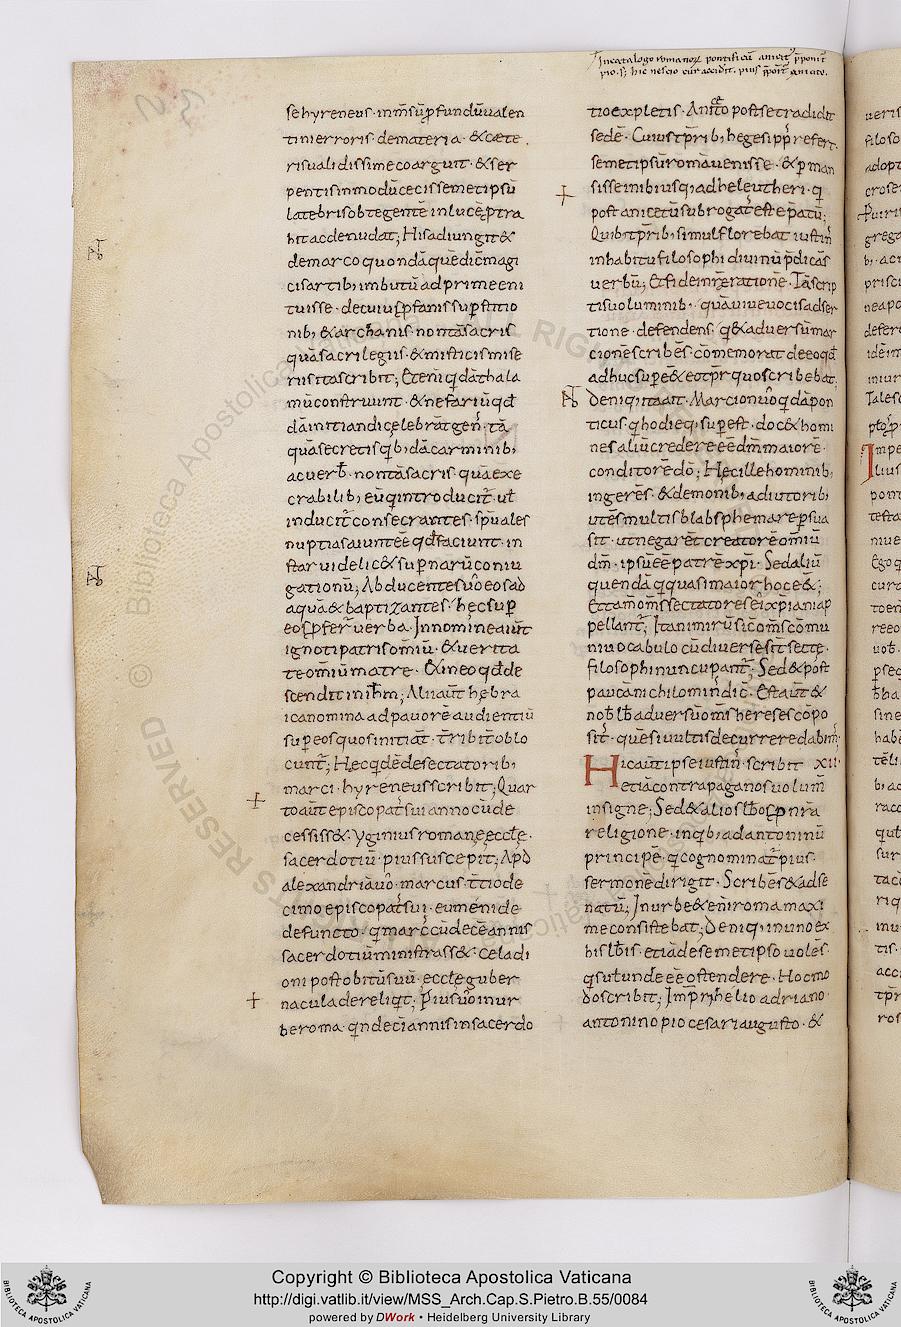 In catalogo romanoꝝ pontificū anicet᷒ p̄ponit᷑
pio .s; hic nescio cur accidit. pius p̄pōit᷑ aniceto.
se hyreneus · inm̄sū ꝓfundū ualen
tini erroris · de materia · & cæte
ris ualidissime coarguit · & ser
pentis in modū cecis semetipsū
latebris obtegentē in lucē ꝓtra
hit ac denudat; His adiungit &
de marco quondā quē dic̄ magi
cis artib; imbutū adprime eni
tuisse · de cuius ꝓfanis sup̄stitio
nib; & archanis non tā sacris
quā sacrilegiis & misticis mise
riis ita scribit; Eteni qdā thala
mū construunt · & nefariū qd
dā initiandi celebrāt gen᷒ · tā
quā secretis qb;dā carminib;
ac uerb̄ · non tā sacris quā exe
crabilib; eū q introducit᷑ · ut
inducit᷑ consecrantes · sp̄uales
nuptias aiunt eē qd̄ faciunt · in
star uidelic& sup̄naꝝ coniu
gationū; Abducentes u̅o eos ad
aquā & baptizantes · hęc sup̄
eos ꝓfer̄ uerba. In nomine aiūt
ignoti patris om̄iū · & uerita
te om̄iū matre · & in eo qd̄ de
scendit in ih̄m; Alii aūt hebra
ica nomina ad pauorē audientiū
sup̄ eos quos initiāt · t̄rib̄ t̄ oblo
cunt᷑; Hec qdē de sectatorib;
marci · hyreneus scribit; Quar
to aūt episcopat᷒ sui anno cū de
cessiss& · yginius romanę eccłę ·
sacerdotiū · pius suscepit; Apd̄
alexandriā u̅o · marcus · t̄tio de
cimo episcopat᷒ sui · eumeni de
defuncto · q marc᷒ cū decē annis
sacerdotiū ministrass& · celadi
oni post obitū suū · ecclę guber
nacula dereliqt; Pius u̅o in ur
be roma · qndeci annis in sacerdo
tio expletis · Anic̄to post se tradidit
sedē · Cuius tp̄rib; hegesipp᷒ refert
semetipsū romā uenisse · & ꝑman
sisse inibi usq; ad heleutheri · q
post anicetū subrogat᷒ est ep̄atū;
Quib; tp̄rib; simul florebat iustin᷒
in habitu filosophi diuinū p̄dicās
uerbū; Et fidei nr̄e rationē · Tā scrip
tis uoluminib; · quā uiue uocis adser
tione · defendens · q & aduersū mar
cionē scribēs · cōmemorat de eo qd̄
adhuc sup̄ē & eo tp̄r quo scribebat;
Deniq; ita ait · Marcion u̅o qdā pon
ticus q hodieq; sup̄est · doc& homi
nes aliū credere eē dm̄ maiorē ·
conditorē dō; Hęc ille hominib;
ingerēs · & demonib; adiutorib;
utēs multis blabsphemare p̄sua
sit · ut negarēt creatorē om̄iū
dm̄ · ipsū eē patrē xp̄i · Sed aliū
quendā q quasi maior hoc e&;
Et tam̄ om̄s sectatores ei᷒ xp̄iani ap
pellant᷑; Ita nimirū sic om̄s cōmu
ni uocabulo cū diuersę sīt sectę ·
filosophi nuncupant᷑; Sed & post
pauca nichilomin᷒ dic̄ · Est aūt &
nob̄ lib̄ aduersū om̄s hereses cōpo
sit᷒ · quē si uultis decurrere dabim᷒
Hic aūt ipse iustin᷒ scribit XII
etiā contra paganos uolum̄
insigne; Sed & alios lib̄os ꝓ nr̄a
religione · inqb; ad antoninū
principē · q cognominat᷒ pius
sermonē dirigit · Scribēs & ad se
natū; In urbe & eni roma maxi
me consistebat; Deniq; in uno ex
his lib̄is · etiā de semetipso uolēs ·
q sut unde eē ostendere · Hoc mo
do scribit; Impr̄i helio adriano ·
antonino pio cesari augusto · &
Copyright © Biblioteca Apostolica Vaticana
http://digi.vatlib.it/view/MSS_Arch.Cap.S.Pietro.B.55/0084
powered by DWork • Heidelberg University Library